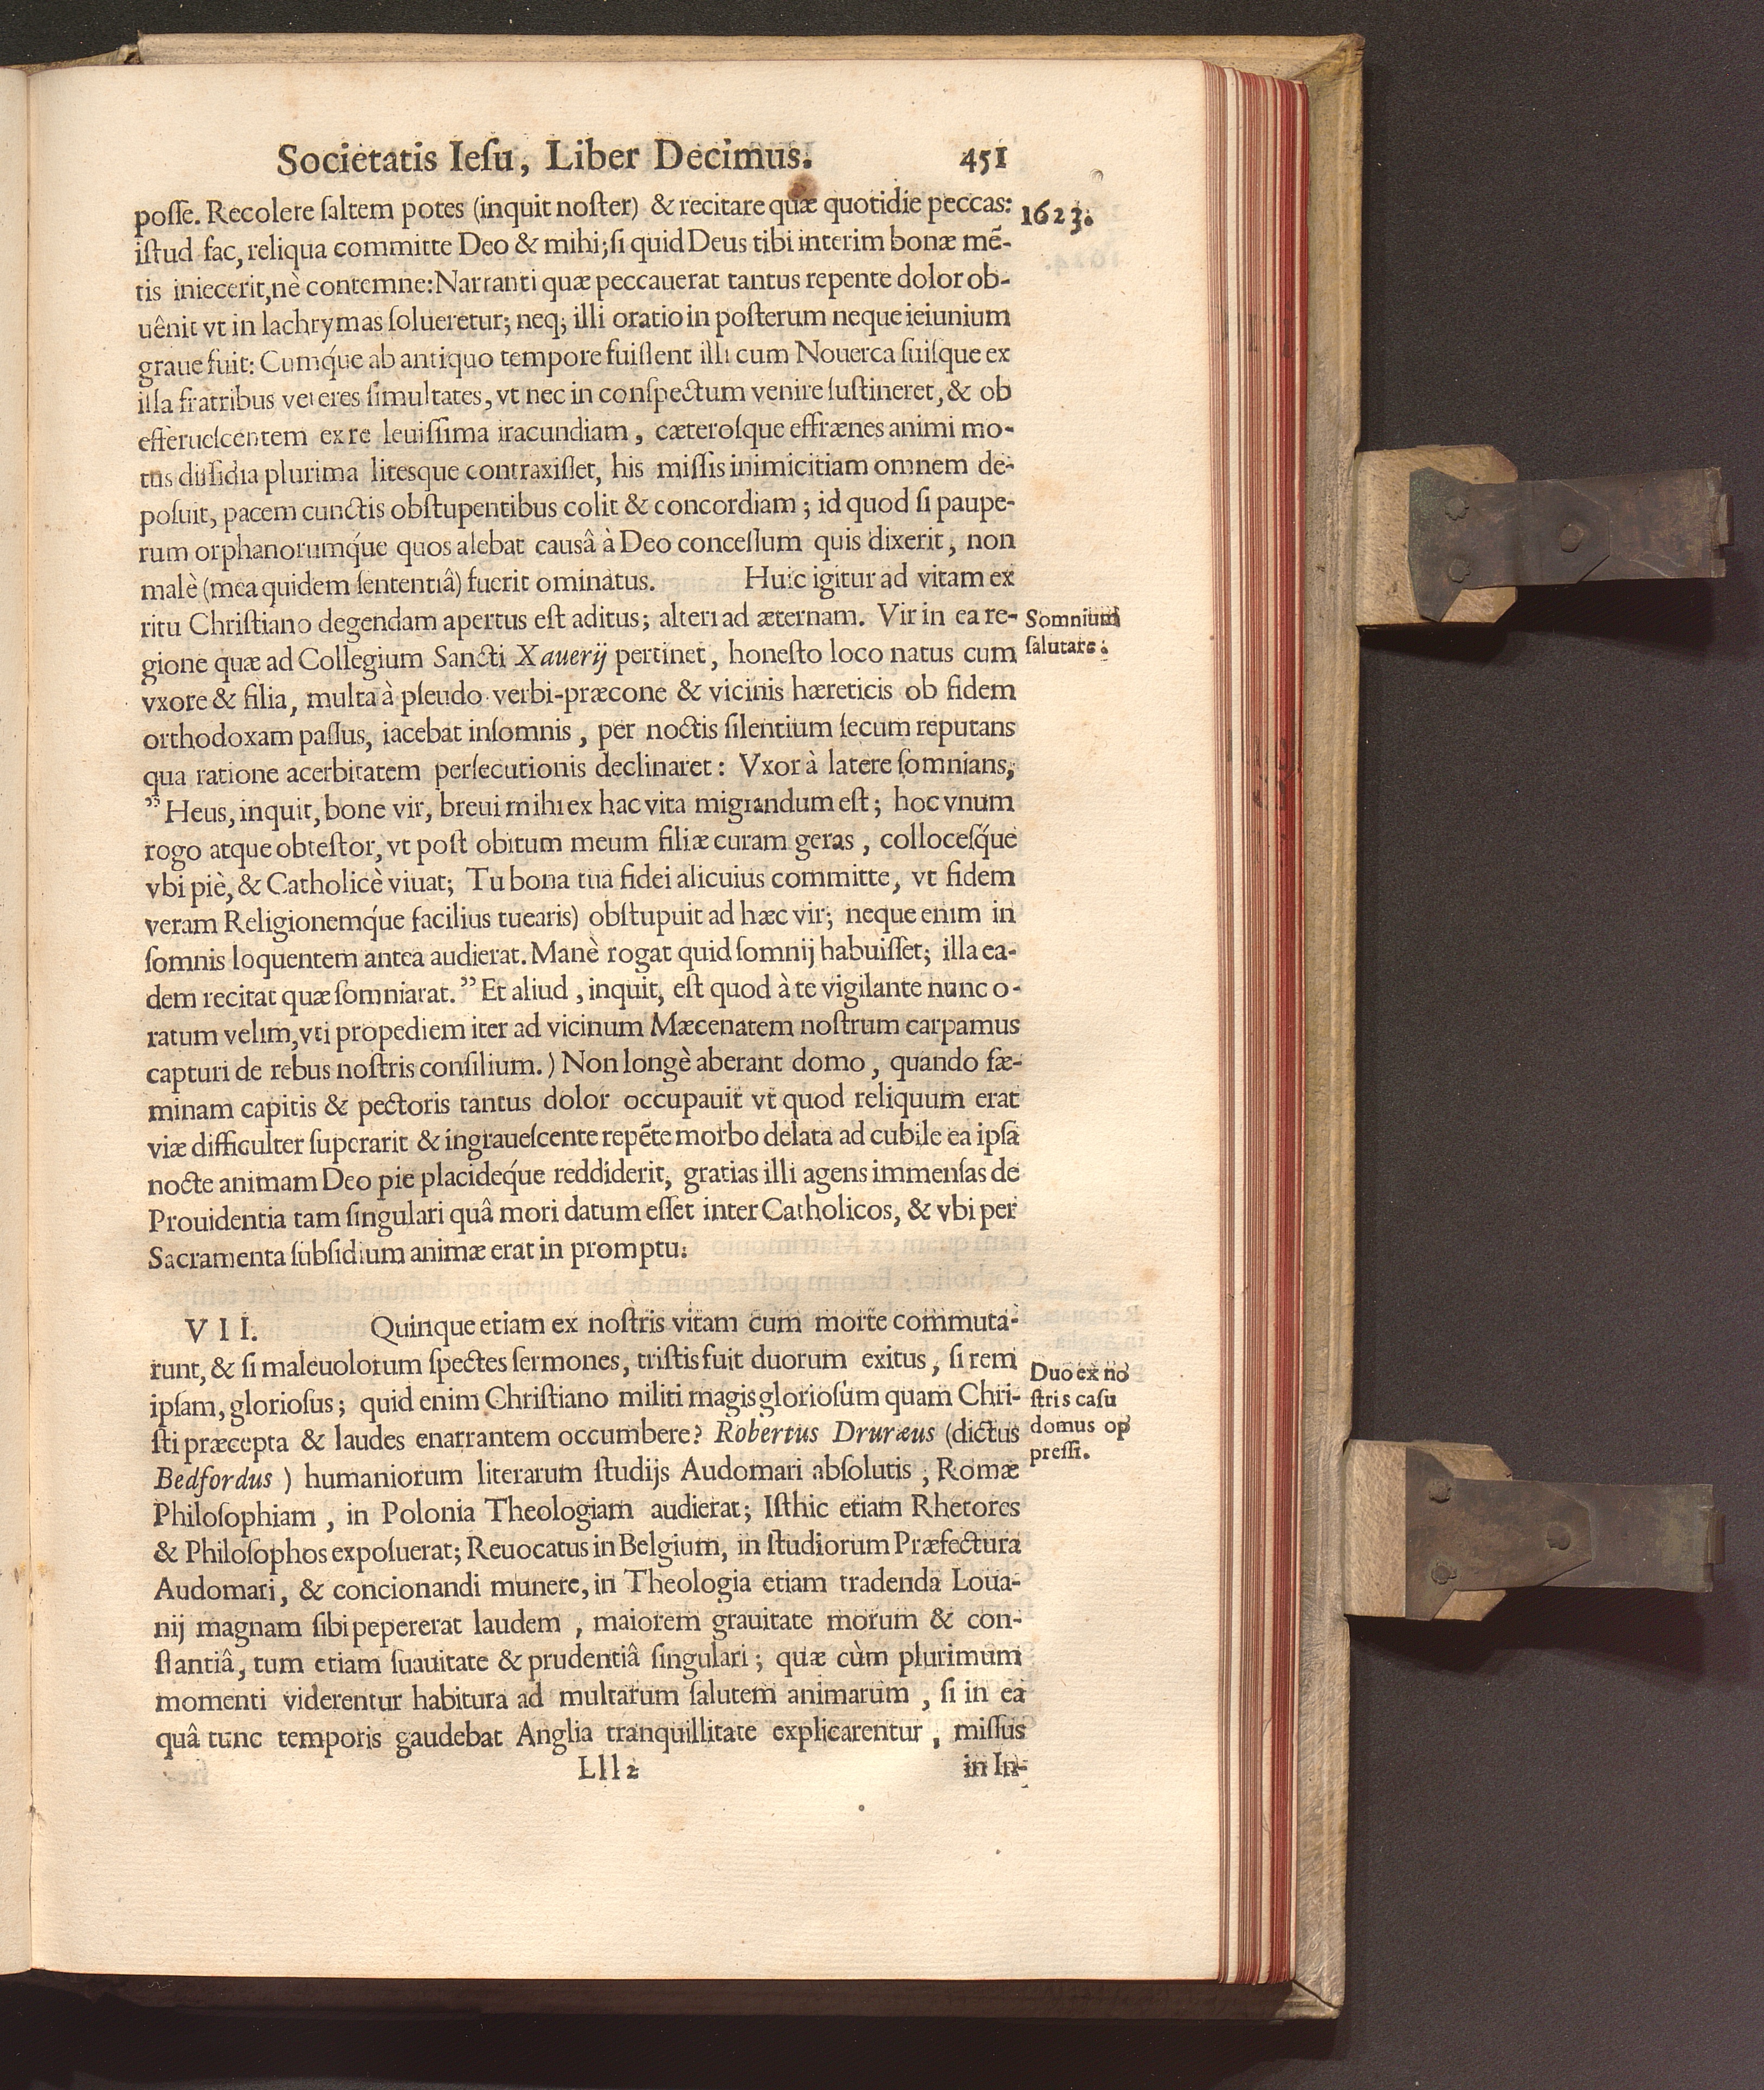 Societatis Ieſu, Liber Decimus. 451
poſſe. Recolere ſaltem potes (inquit noſter) & recitare quæ quotidie peccas:
1623.
iſtud fac, reliqua committe Deo & mihi; ſi quid Deus tibi interim bonæ mē-
tis iniecerit, nè contemne: Narranti quæ peccauerat tantus repente dolor ob-
uênit vt in lachrymas ſolueretur; neq; illi oratio in poſterum neque ieiunium
graue fuit: Cumq́ue ab antiquo tempore fuiſſent illi cum Nouerca ſuiſque ex
illa fratribus veteres ſimultates, vt nec in conſpectum venire ſuſtineret, & ob
efferueſcentem ex re leuiſſima iracundiam, cæteroſque effrænes animi mo-
tus diſſidia plurima liteſque contraxiſſet, his miſſis inimicitiam omnem de-
poſuit, pacem cunctis obſtupentibus colit & concordiam; id quod ſi paupe-
rum orphanorumq́ue quos alebat causâ à Deo conceſſum quis dixerit, non
malè (mea quidem ſententiâ) fuerit ominatus. Huic igitur ad vitam ex
ritu Chriſtiano degendam apertus eſt aditus; alteri ad æternam. Vir in ea re-
Somnium
ſalutare.
gione quæ ad Collegium Sancti Xauerij pertinet, honeſto loco natus cum
vxore & filia, multa à pſeudo verbi-præcone & vicinis hæreticis ob fidem
orthodoxam paſſus, iacebat inſomnis, per noctis ſilentium ſecum reputans
qua ratione acerbitatem perſecutionis declinaret: Vxor à latere ſomnians,
” Heus, inquit, bone vir, breui mihi ex hac vita migrandum eſt; hoc vnum
rogo atque obteſtor, vt poſt obitum meum filiæ curam geras, colloceſq́ue
vbi piè, & Catholicè viuat; Tu bona tua fidei alicuius committe, vt fidem
veram Religionemq́ue facilius tuearis) obſtupuit ad hæc vir; neque enim in
ſomnis loquentem antea audierat. Manè rogat quid ſomnij habuiſſet; illa ea-
dem recitat quæ ſomniarat. ” Et aliud, inquit, eſt quod à te vigilante nunc o-
ratum velim, vti propediem iter ad vicinum Mæcenatem noſtrum carpamus
capturi de rebus noſtris conſilium.) Non longè aberant domo, quando fæ-
minam capitis & pectoris tantus dolor occupauit vt quod reliquum erat
viæ difficulter ſuperarit & ingraueſcente repēte morbo delata ad cubile ea ipſa
nocte animam Deo pie placideq́ue reddiderit, gratias illi agens immenſas de
Prouidentia tam ſingulari quâ mori datum eſſet inter Catholicos, & vbi per
Sacramenta ſubſidium animæ erat in promptu.
VII. Quinque etiam ex noſtris vitam cum morte commuta-
runt, & ſi maleuolorum ſpectes ſermones, triſtis fuit duorum exitus, ſi rem
Duo ex no
ſtris caſu
domus op
preſſi.
ipſam, glorioſus; quid enim Chriſtiano militi magis glorioſum quam Chri-
ſti præcepta & laudes enarrantem occumbere? Robertus Druræus (dictus
Bedfordus) humaniorum literarum ſtudijs Audomari abſolutis, Romæ
Philoſophiam, in Polonia Theologiam audierat; Iſthic etiam Rhetores
& Philoſophos expoſuerat; Reuocatus in Belgium, in ſtudiorum Præfectura
Audomari, & concionandi munere, in Theologia etiam tradenda Loua-
nij magnam ſibi pepererat laudem, maiorem grauitate morum & con-
ſtantiâ, tum etiam ſuauitate & prudentiâ ſingulari; quæ cùm plurimum
momenti viderentur habitura ad multarum ſalutem animarum, ſi in ea
quâ tunc temporis gaudebat Anglia tranquillitate explicarentur, miſſus
Lll2 in In-